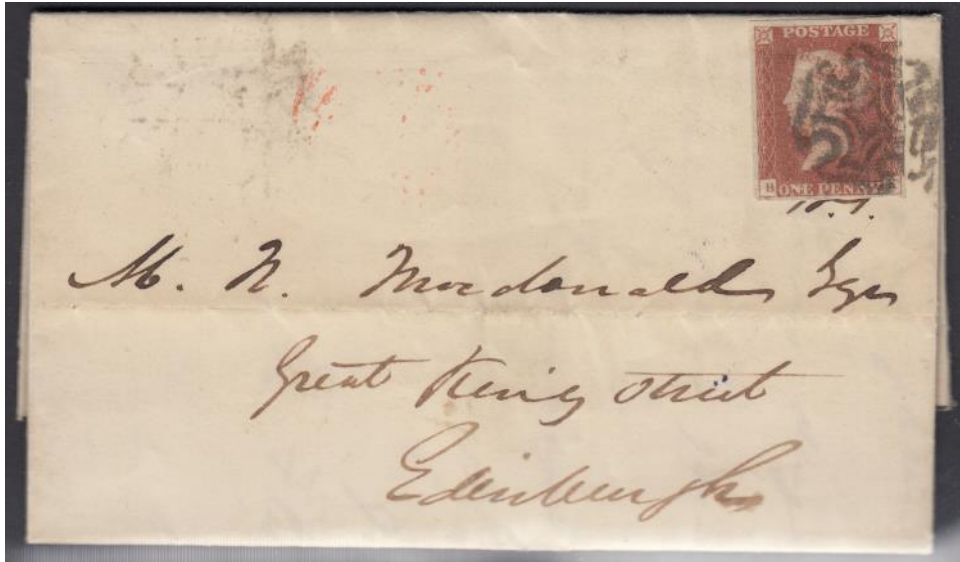 POSTAGE
B ONE PENNY
M. N. Macdonald Esqr
Great King Street
Edinburgh